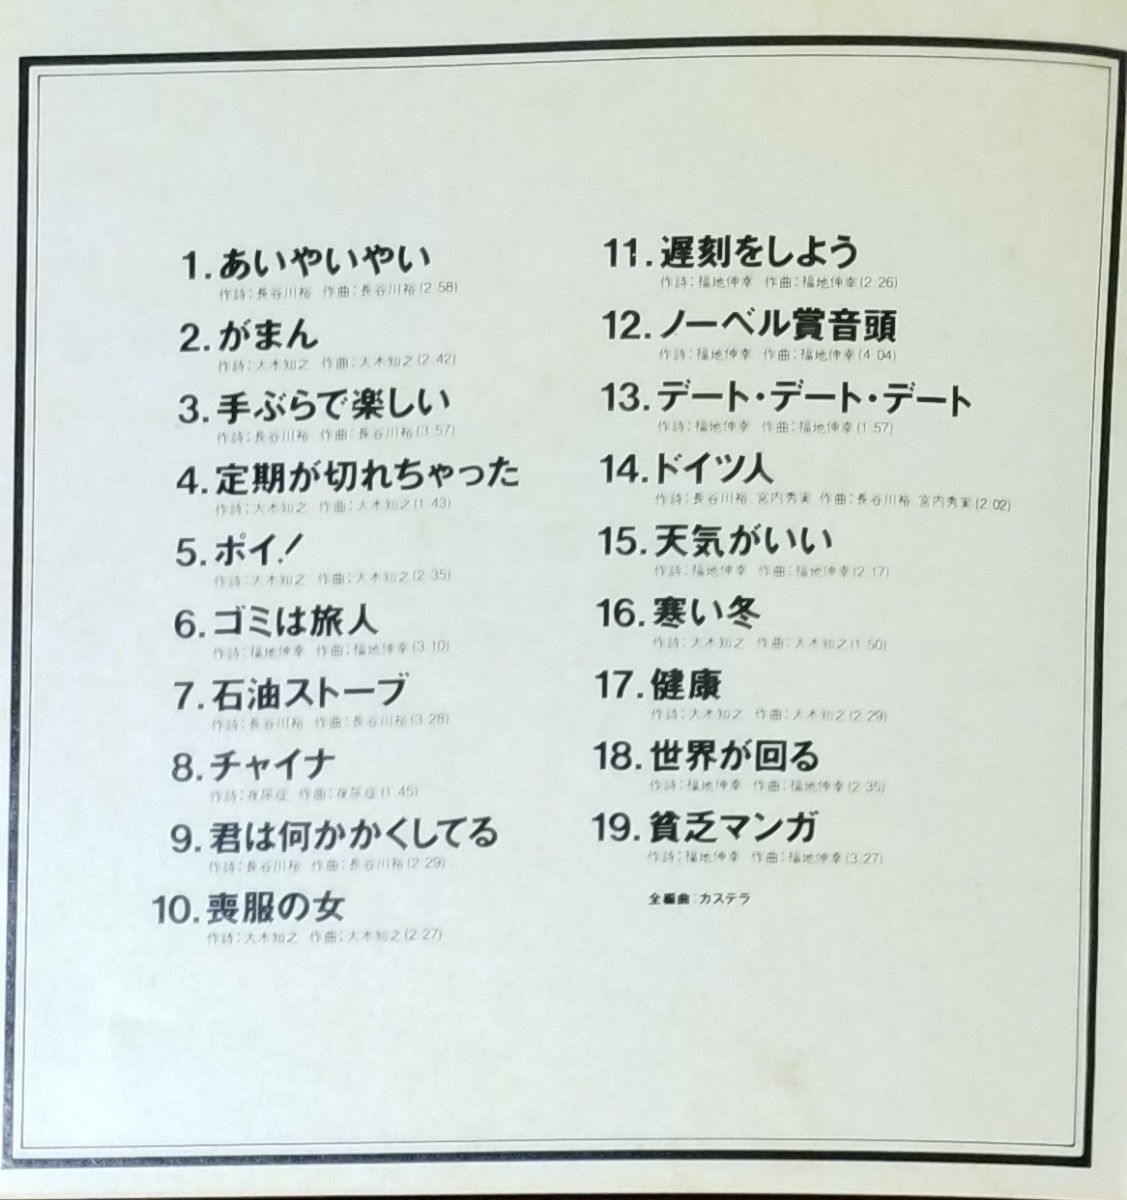 1. あいやいやい
作詩：長谷川裕 作曲：長谷川裕(2 58)
2. がまん
作詩：大木知之 作曲：大木知之(2 42)
3. 手ぶらで楽しい
作詩：長谷川裕 作曲：長谷川裕(3 57)
4. 定期が切れちゃった
作詩：大木知之 作曲：大木知之(1 43)
5. ポイ!
作詩：大木知之 作曲：大木知之(2 35)
6. ゴミは旅人
作詩：福地伸幸 作曲：福地伸幸(3 10)
7. 石油ストーブ
作詩：長谷川裕 作曲：長谷川裕(3 28)
8. チャイナ
作詩：夜尿症 作曲：夜尿症(1 45)
9. 君は何かかくしてる
作詩：長谷川裕 作曲：長谷川裕(2 29)
10. 喪服の女
作詩：大木知之 作曲：大木知之(2 27)
11. 遅刻をしよう
作詩：福地伸幸 作曲：福地伸幸(2 26)
12. ノーベル賞音頭
作詩：福地伸幸 作曲：福地伸幸(4 04)
13. デート・デート・デート
作詩：福地伸幸 作曲：福地伸幸(1 57)
14. ドイツ人
作詩：長谷川裕 宮内秀実 作曲：長谷川裕 宮内秀実(2 02)
15. 天気がいい
作詩：福地伸幸 作曲：福地伸幸(2 17)
16. 寒い冬
作詩：大木知之 作曲：大木知之(1 50)
17. 健康
作詩：大木知之 作曲：大木知之(2 29)
18. 世界が回る
作詩：福地伸幸 作曲：福地伸幸(2 35)
19. 貧乏マンガ
作詩：福地伸幸 作曲：福地伸幸(3 27)
全編曲：カステラ